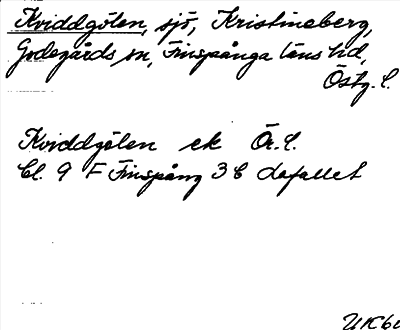 Kviddgölen, sjö, Kristineberg,
Godegårds sn, Finspånga läns hd,
Östg. l.
Kviddgölen ek Ör. l.
bl. 9 F Finspång 3 b
UK 60